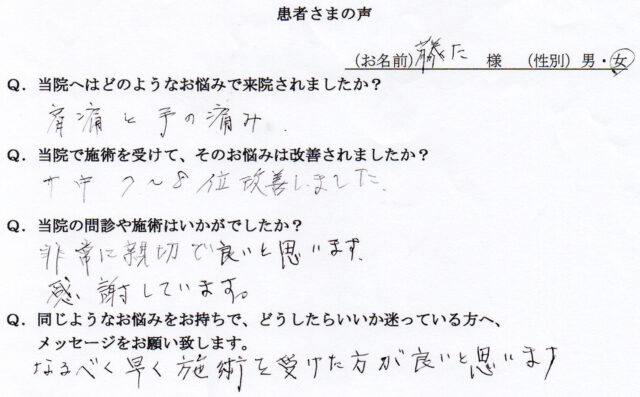 患者さまの声
(お名前) 藤た 様 (性別) 男・女
Q．当院へはどのようなお悩みで来院されましたか？
肩痛と手の痛み.
Q．当院で施術を受けて、そのお悩みは改善されましたか？
十中7〜8位改善しました.
Q．当院の問診や施術はいかがでしたか？
非常に親切で良いと思います.
感謝しています。
Q．同じようなお悩みをお持ちで、どうしたらいいか迷っている方へ、
メッセージをお願い致します。
なるべく早く施術を受けた方が良いと思います